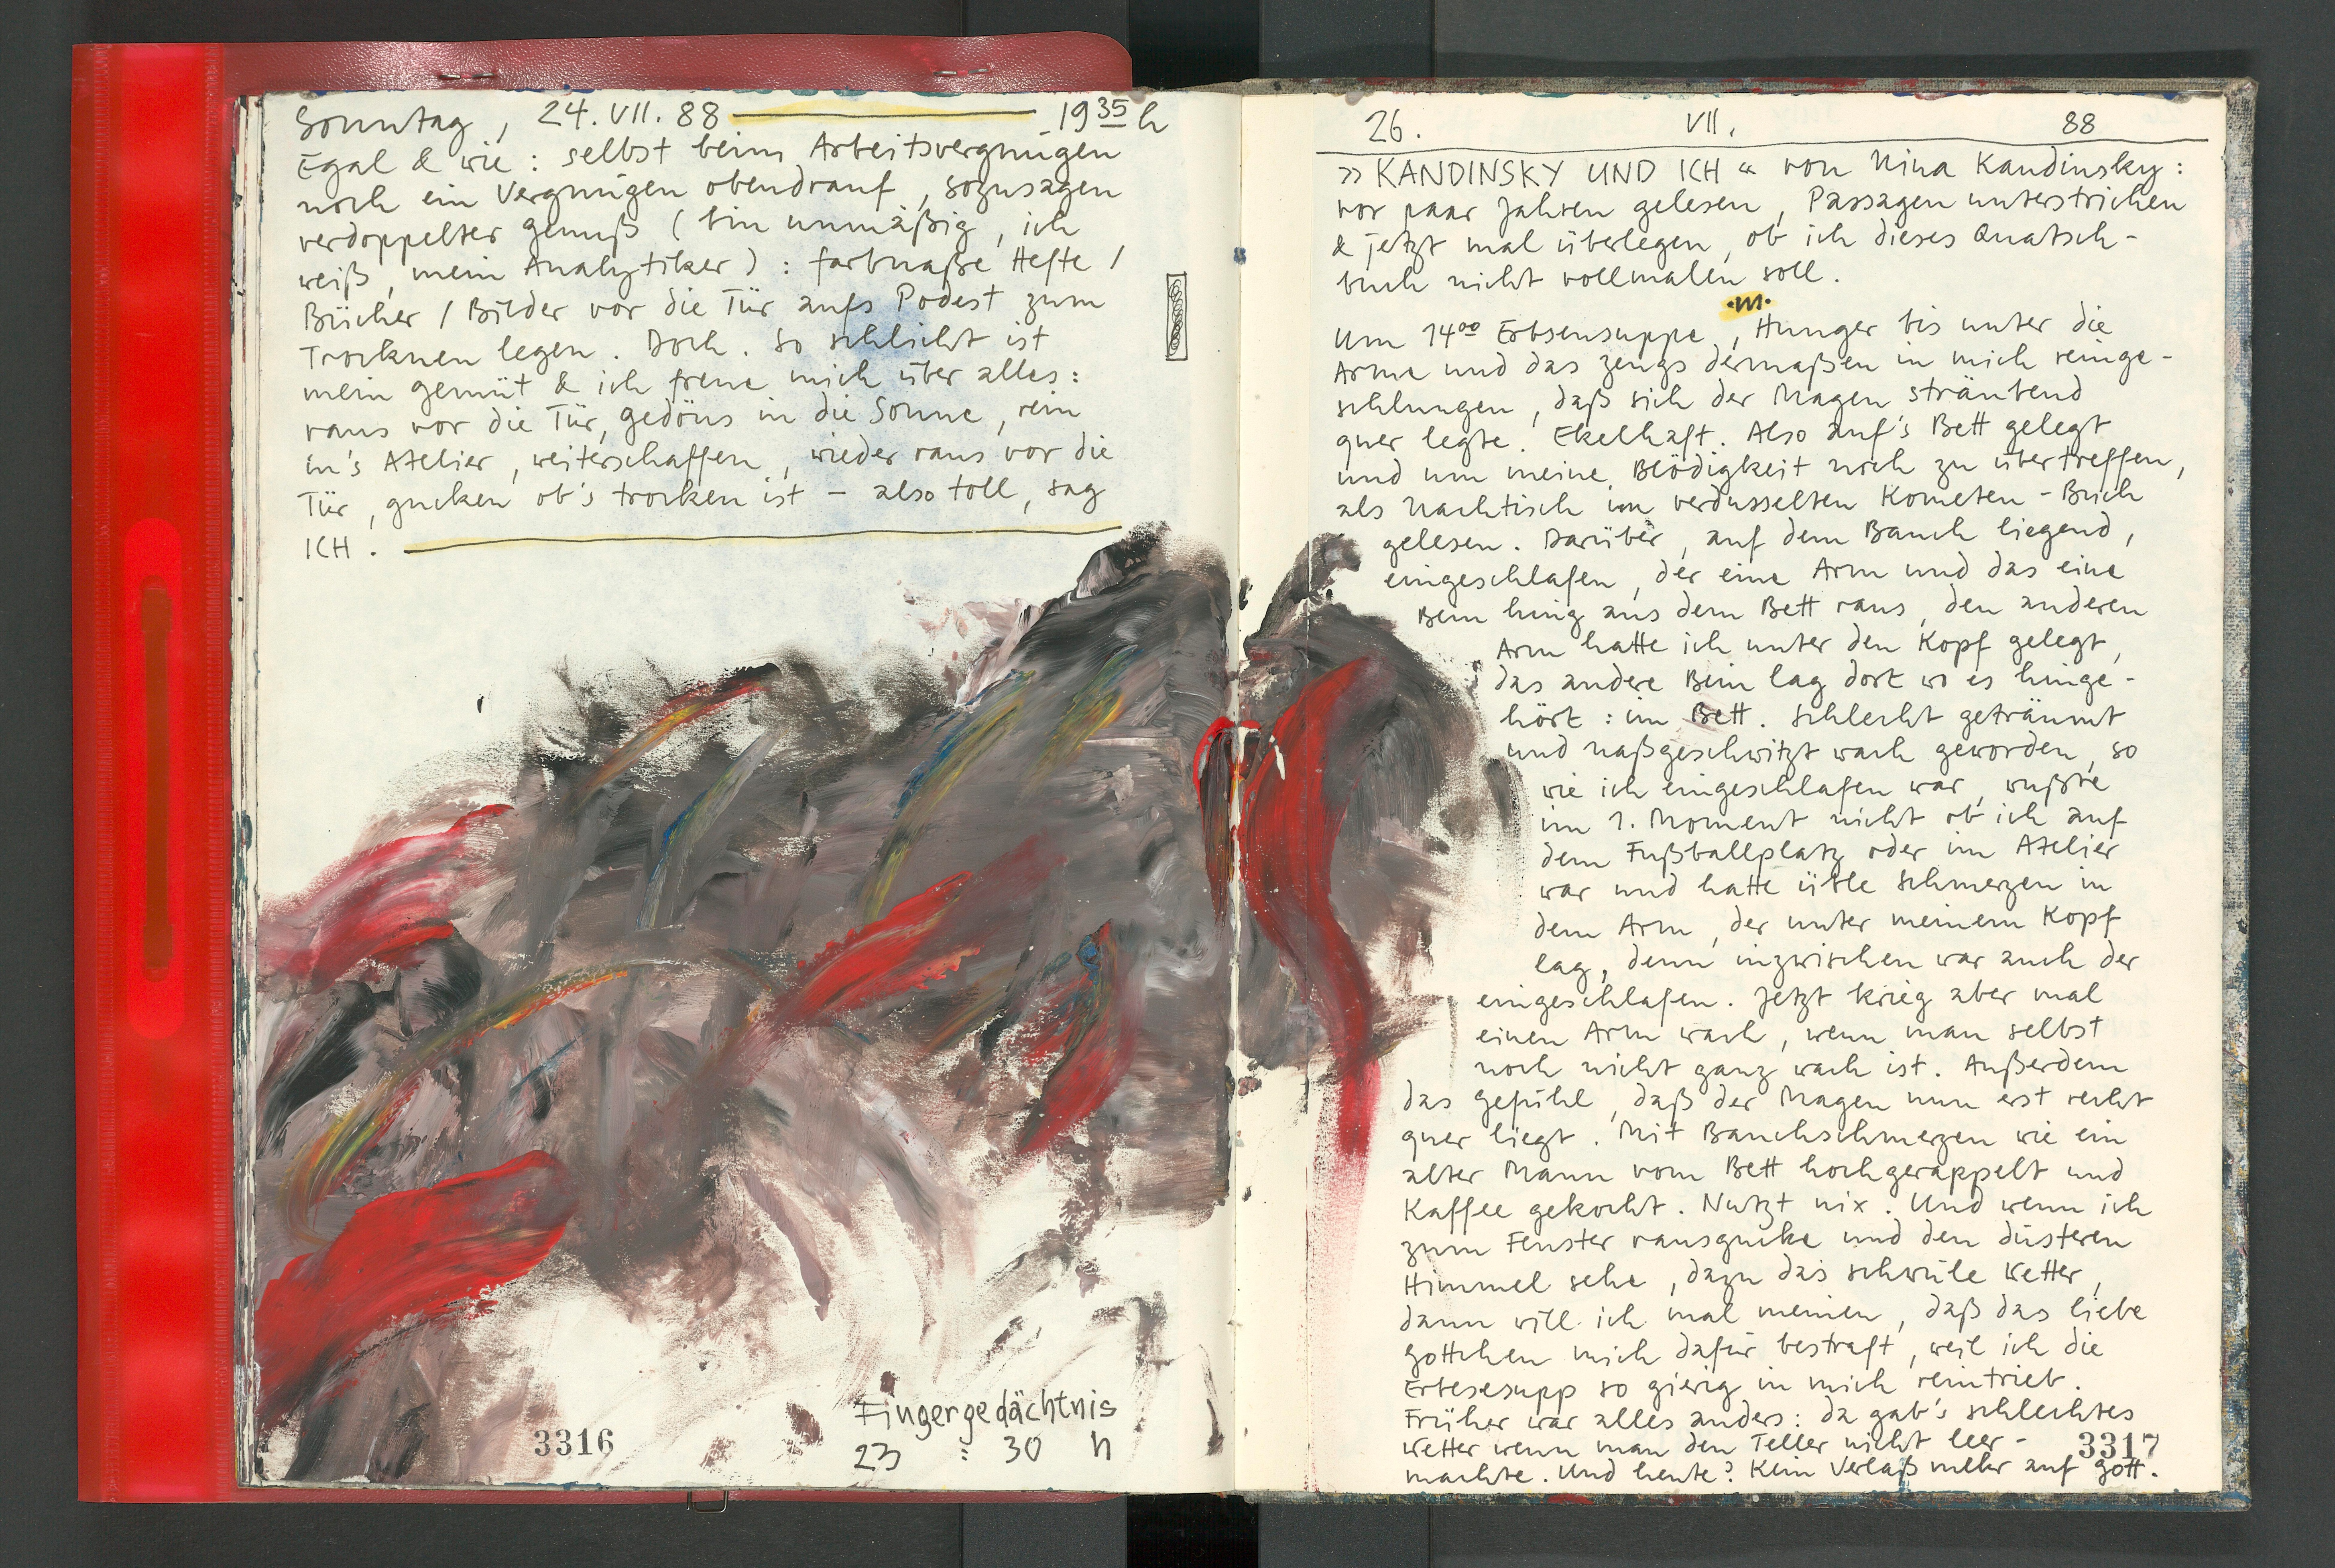 Sonntag, 24. VII. 88 19 35 h
Egal & wie: selbst beim Arbeitsvergnügen
noch ein Vergnügen obendrauf, sozusagen
verdoppelter Genuß (bin unmäßig, ich
weiß, mein Analytiker): farbnaße Hefte /
Bücher / Bilder vor die Tür aufs Podest zum
Trocknen legen. Doch. So schlicht ist
mein Gemüt & ich freue mich über alles:
raus vor die Tür, Gedöns in die Sonne, rein
in's Atelier, weiterschaffen, wieder raus vor die
Tür, gucken ob's trocken ist – also toll, sag
ICH.
Fingergedächtnis
23 : 30 h
3316
26. VII. 88
»KANDINSKY UND ICH« von Nina Kandinsky:
vor paar Jahren gelesen, Passagen unterstrichen
& jetzt mal überlegen, ob ich dieses Quatsch-
buch nicht vollmalen soll.
·m·
Um 14 00 Erbsensuppe, Hunger bis unter die
Arme und das Zeugs dermaßen in mich reinge-
schlungen, daß sich der Magen sträubend
quer legte. Ekelhaft. Also auf's Bett gelegt
und um meine Blödigkeit noch zu übertreffen,
als Nachtisch im verdusselten Kometen-Buch
gelesen. Darüber, auf dem Bauch liegend,
eingeschlafen, der eine Arm und das eine
Bein hing aus dem Bett raus, den anderen
Arm hatte ich unter den Kopf gelegt,
das andere Bein lag dort wo es hinge-
hört: im Bett. Schlecht geträumt
und naßgeschwitzt wach geworden, so
wie ich eingeschlafen war, wußte
im 1. Moment nicht ob ich auf
dem Fußballplatz oder im Atelier
war und hatte üble Schmerzen in
dem Arm, der unter meinem Kopf
lag, denn inzwischen war auch der
eingeschlafen. Jetzt krieg aber mal
einen Arm wach, wenn man selbst
noch nicht ganz wach ist. Außerdem
das Gefühl, daß der Magen nun erst recht
quer liegt. Mit Bauchschmerzen wie ein
alter Mann vom Bett hochgerappelt und
Kaffee gekocht. Nutzt nix. Und wenn ich
zum Fenster rausgucke und den düsteren
Himmel sehe, dazu das schwüle Wetter,
dann will ich mal meinen, daß das liebe
Gottchen mich dafür bestraft, weil ich die
Erbsesupp so gierig in mich reintrieb.
Früher war alles anders: da gab's schlechtes
Wetter wenn man den Teller nicht leer-
machte. Und heute? Kein Verlaß mehr auf Gott.
3317